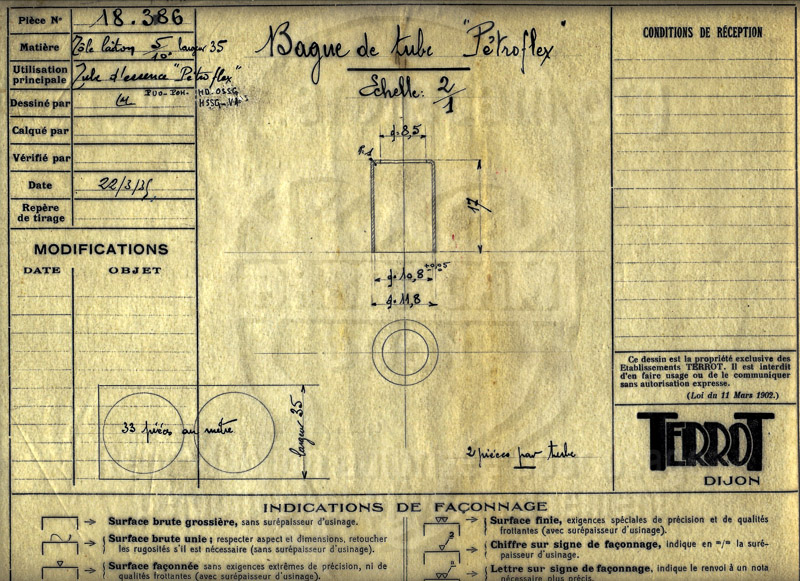 Pièce N° 18.386
Matière Tôle laiton 5/10° largeur 35
Utilisation principale Tube d'essence "Pétroflex"
PUO-POH. HD-OSSG
HSSG-
Dessiné par
Calqué par
Vérifié par
Date 22/3/35
Repère de tirage
MODIFICATIONS
DATE OBJET
Bague de tube "Pétroflex"
Echelle: 2/1
φ=8,5
R.1
17
φ=10,8 +0,05
φ=11,8
33 pièces au mètre
largeur 35
2 pièces par tube
CONDITIONS DE RÉCEPTION
Ce dessin est la propriété exclusive des
Etablissements TERROT. Il est interdit
d'en faire usage ou de le communiquer
sans autorisation expresse.
(Loi du 11 Mars 1902.)
TERROT
DIJON
INDICATIONS DE FAÇONNAGE
Surface brute grossière, sans surépaisseur d'usinage.
Surface brute unie; respecter aspect et dimensions, retoucher
les rugosités s'il est nécessaire (sans surépaisseur d'usinage).
Surface façonnée sans exigences extrêmes de précision, ni de
qualités frottantes (avec surépaisseur d'usinage).
Surface finie, exigences spéciales de précision et de qualités
frottantes (avec surépaisseur d'usinage).
Chiffre sur signe de façonnage, indique en m/m la suré-
paisseur d'usinage.
Lettre sur signe de façonnage, indique le renvoi à un nota
nécessaire plus précis.